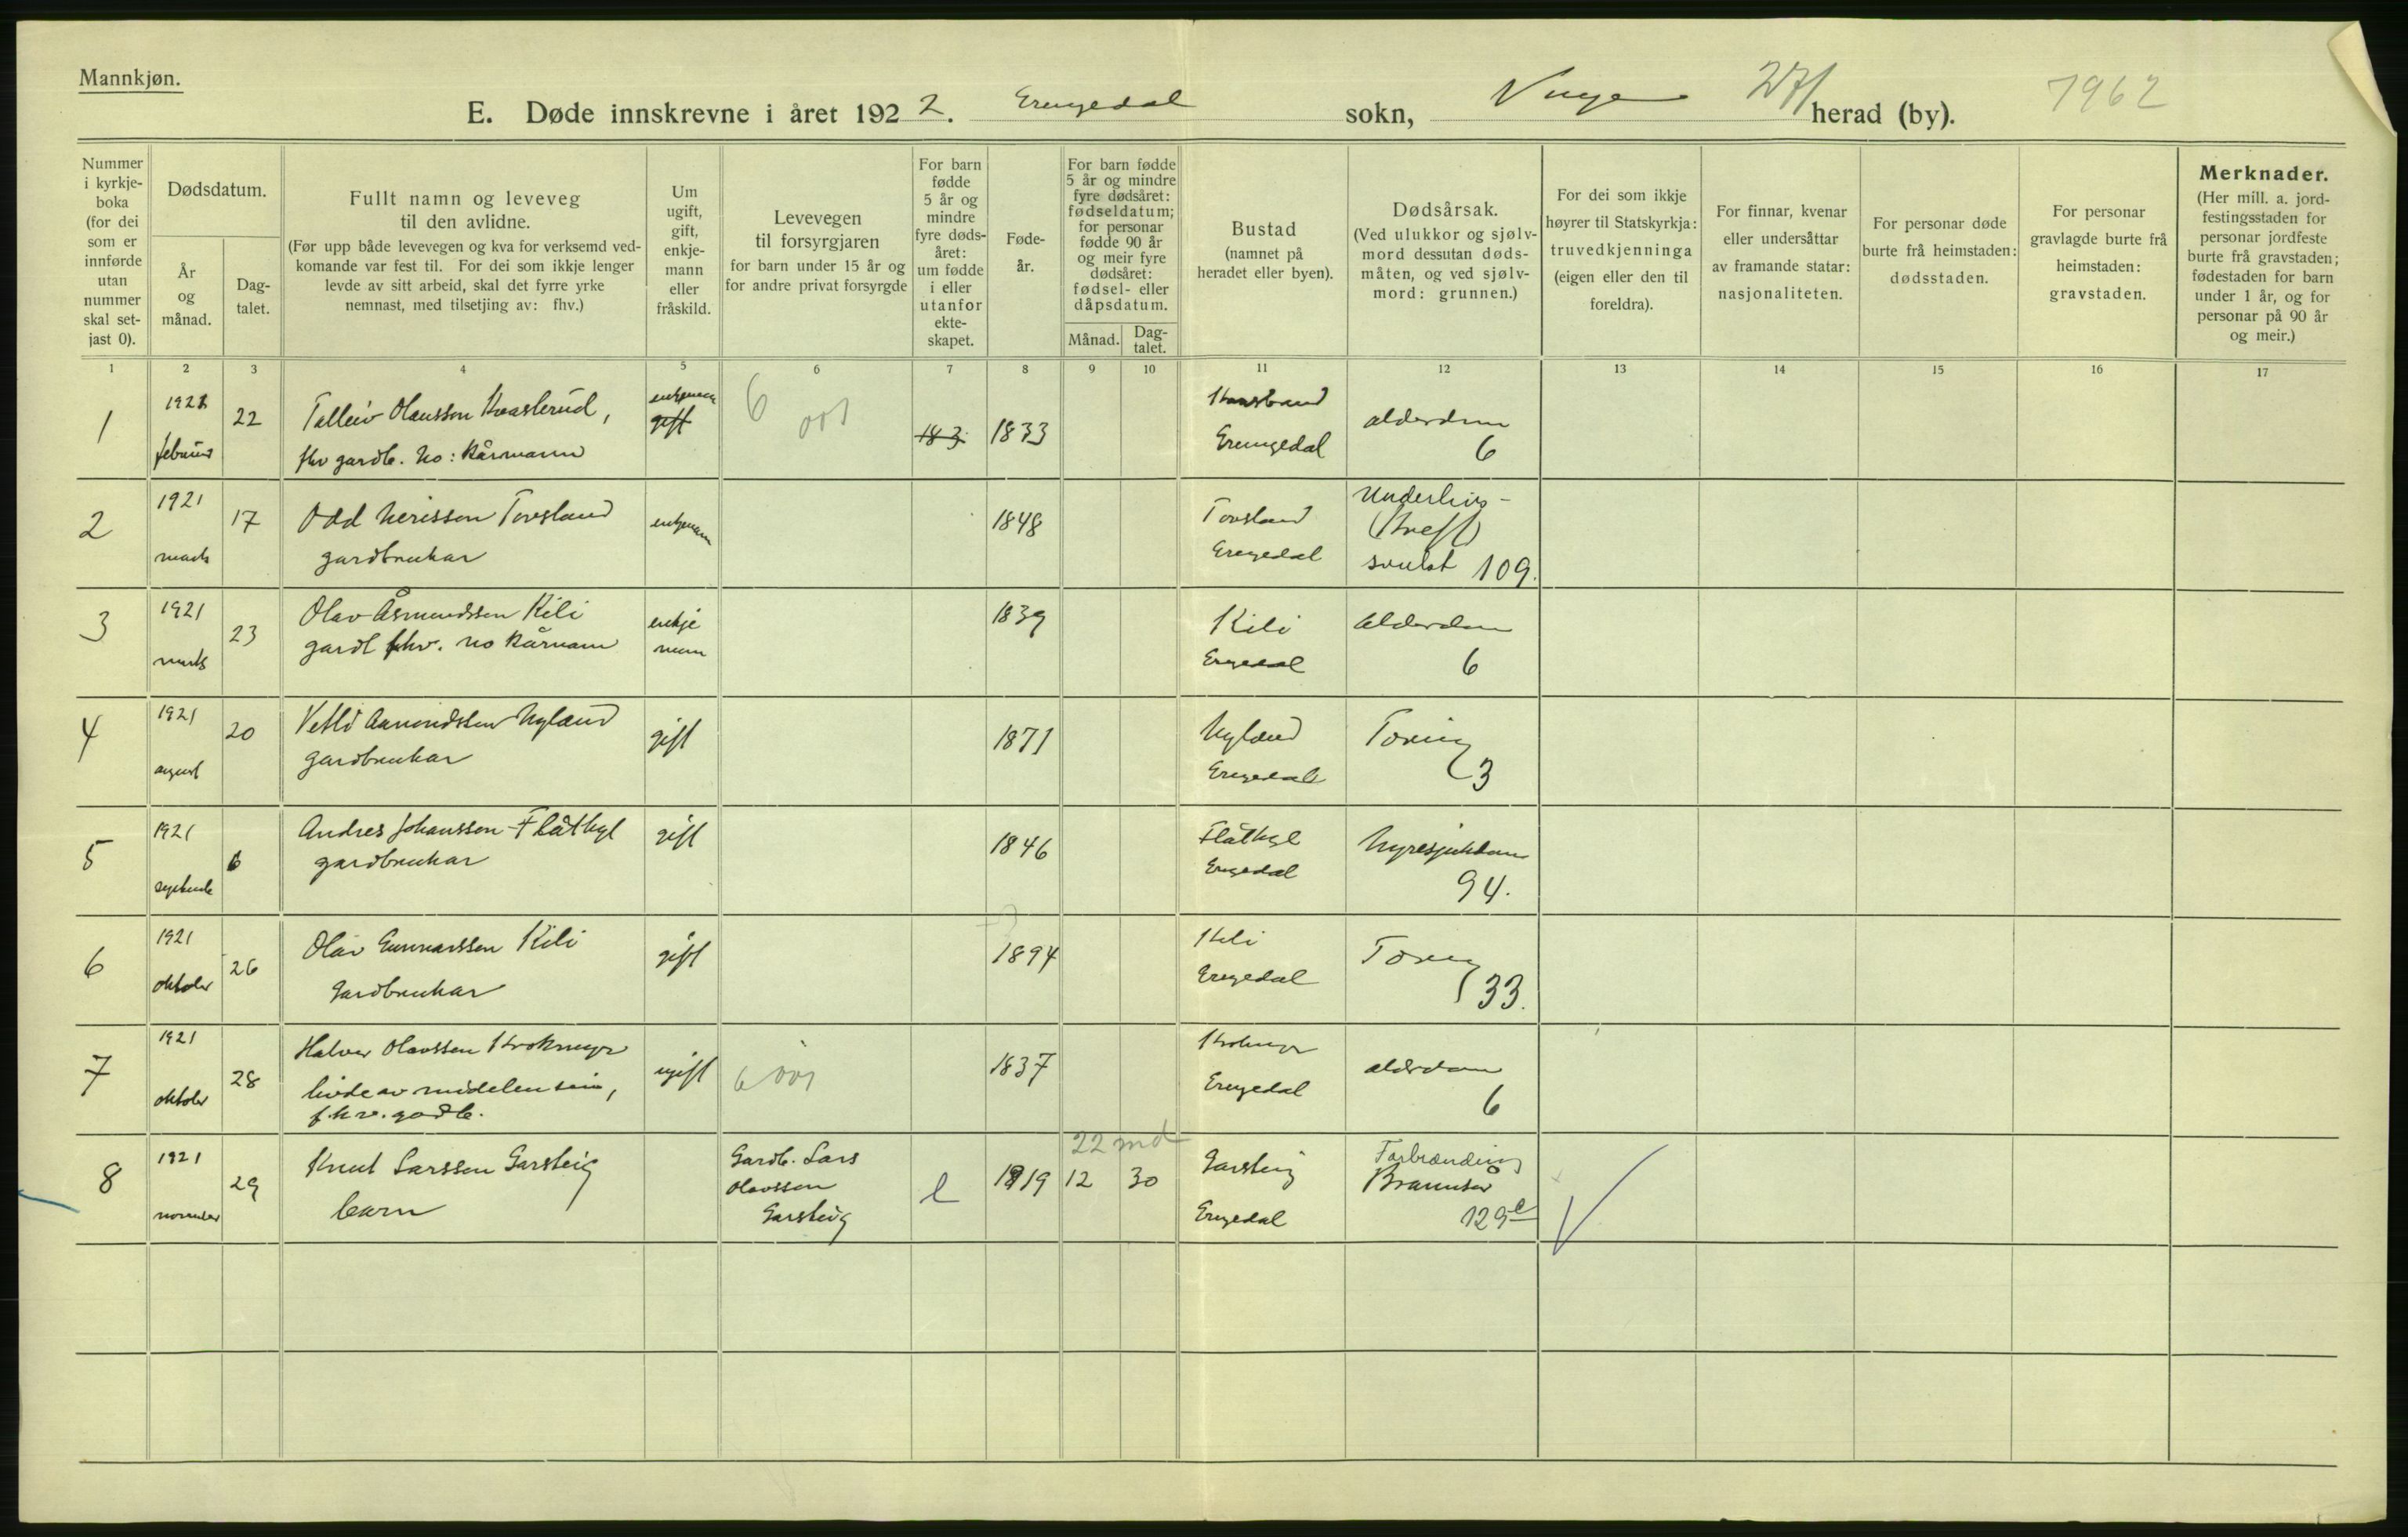 Mannkjøn.
E. Døde innskrevne i året 1922. sokn, 271 herad (by). 7962
Nummer i kyrkje-boka (for dei som er innførde utan nummer skal set-jast 0).
Dødsdatum.
År og månad.
Dag-talet.
Fullt namn og leveveg til den avlidne.
(Før upp både levevegen og kva for verksemd ved-komande var fest til. For dei som ikkje lenger levde av sitt arbeid, skal det fyrre yrke nemnast, med tilsetjing av: fhv.)
Um ugift, gift, enkje-mann eller fråskild.
Levevegen til forsyrgjaren for barn under 15 år og for andre privat forsyrgde
For barn fødde 5 år og mindre fyre døds-året: um fødde i eller utanfor ekte-skapet.
Føde-år.
For barn fødde 5 år og mindre fyre dødsåret: fødseldatum; for personar fødde 90 år og meir fyre dødsåret: fødsel- eller dåpsdatum.
Månad.
Dag-talet.
Bustad (namnet på heradet eller byen).
Dødsårsak. (Ved ulukkor og sjølv-mord dessutan døds-måten, og ved sjølv-mord: grunnen.)
For dei som ikkje høyrer til Statskyrkja: truvedkjenninga (eigen eller den til foreldra).
For finnar, kvenar eller undersåttar av framande statar: nasjonaliteten.
For personar døde burte frå heimstaden: dødsstaden.
For personar gravlagde burte frå heimstaden: gravstaden.
Merknader. (Her mill. a. jord-festingsstaden for personar jordfeste burte frå gravstaden; fødestaden for barn under 1 år, og for personar på 90 år og meir.)
1 2 3 4 5 6 7 8 9 10 11 12 13 14 15 16 17
1 februar 22 Olausson gift 6 001 1833 6
fhv gardb. no: kårmann
2 1921 mars 17 Odd Torsland enkjemann 1848 Torsland Underlivs-
gardbrukar (kreft)
svulst 109.
3 1921 mars 23 Olav Åsmundssen Kili enkje 1839 Kili alderdom
gardb fhv. no kårmann mann 6
4 1921 august 20 Nyland gift 1871 Nyland Tæring
gardbrukar 3
5 1921 6 Andres Johansson Flåthyl gift 1846 Flåthyl Nyresjukdom
gardbrukar 94.
6 1921 oktober 26 Olav Gunnarssen Kili gift 1894 Kili Tæring
Gardbrukar 33.
7 1921 oktober 28 Halvor Olavssen ugift 6 001 1837 alderdom
livde av midelen sine, 6
f.h.v. gardb.
22 md
8 1921 november 29 Knut Larssen Garsteig Gardb. Lars Olavssen Garsteig e 1919 12 30 Garsteig Forbrænding
barn Brannsår
129e